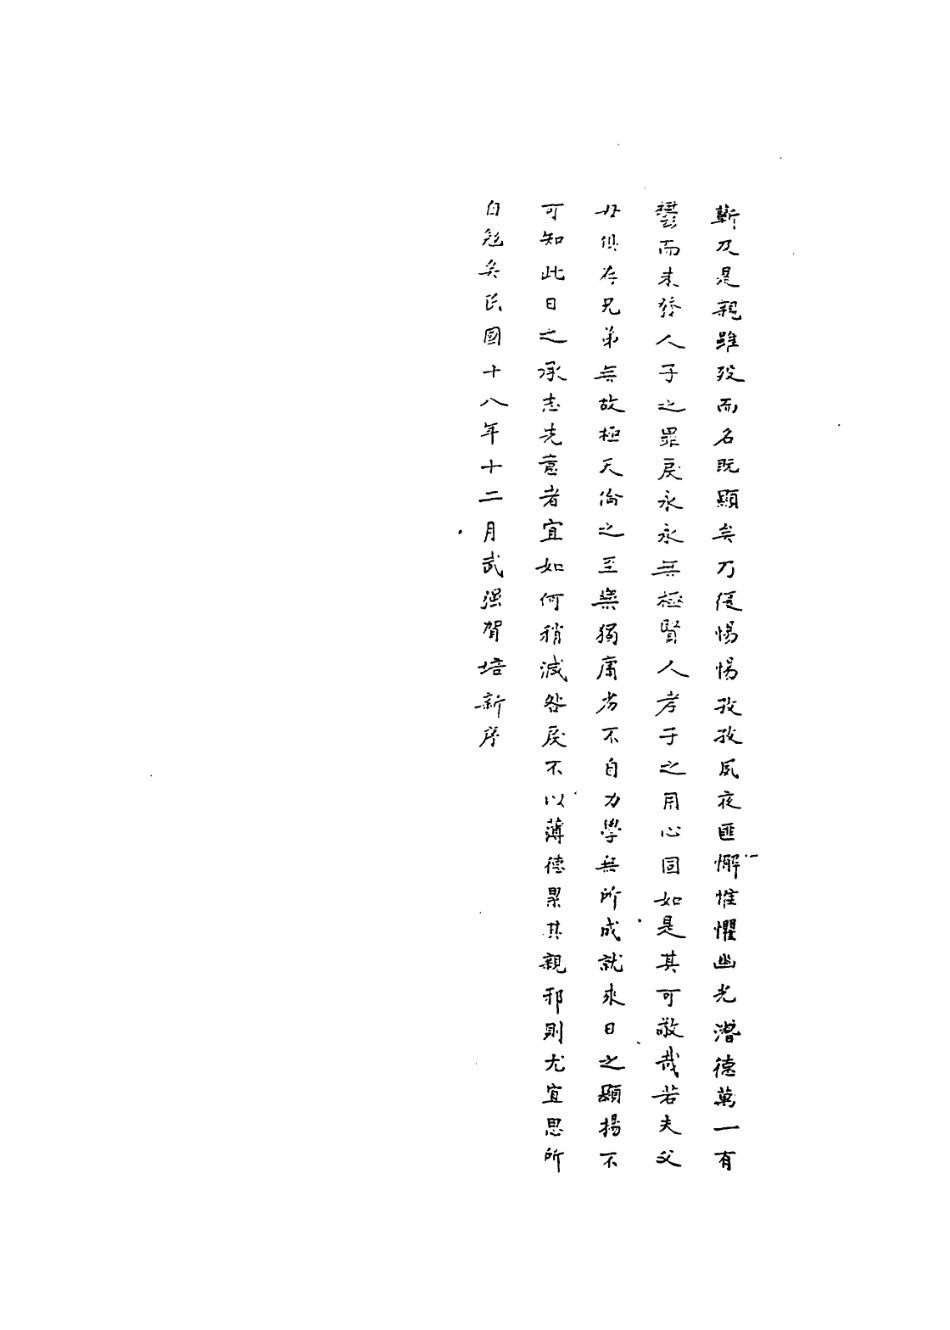 蘄及是親雖歿而名既顯矣乃復惕惕孜孜夙夜匪懈惟懼幽光潛德萬一有
鬱而未發人子之罪戾永永無極賢人孝子之用心固如是其可敬哉若夫父
母俱存兄弟無故極天倫之至樂獨庸劣不自力學無所成就來日之顯揚不
可知此日之承志先意者宜如何稍減咎戾不以薄德累其親邪則尤宜思所
自勉矣民國十八年十二月武强賀培新序